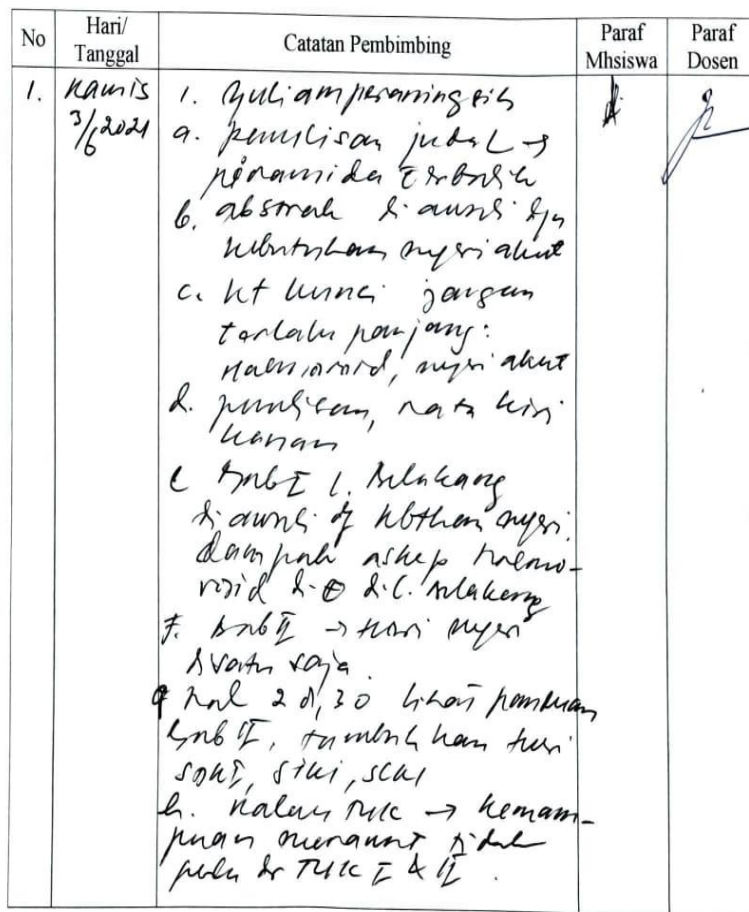 No Hari/ Tanggal Catatan Pembimbing Paraf Mhsiswa Paraf Dosen
1. Kamis 3/6 2021
1. Yuliamperaningsih
a. penulisan judul →
piramida terbalik
b. abstrak diawali dgn
kebutuhan nyeri akut
c. kt kunci jangan
terlalu panjang:
haemoroid, nyeri akut
d. penulisan, rata kiri
kanan
e Bab I l. Belakang
diawali dg kbthan nyeri.
dampak askep haemo-
roid di di l. belakang
f. Bab II → teori nyeri
saja
g hal 30 lihat panduan
Bab II, tambahkan teori
SDKI, SIKI, SLKI
h. kalau TUK → kemam-
puan merawat tidak
perlu TUK I & II.